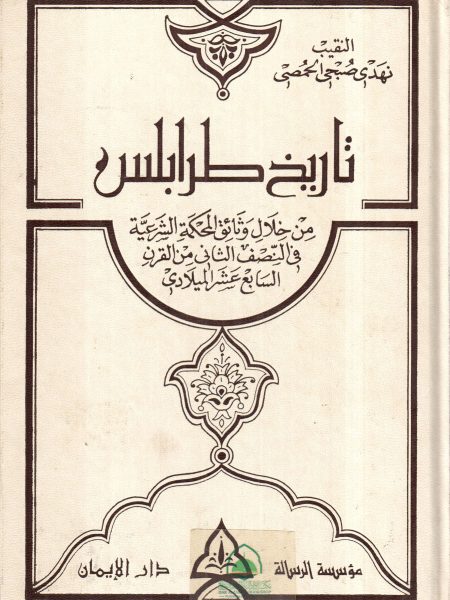 النقيب
نهدي صبحي الحمصي
تاريخ طرابلس
من خلال وثائق المحكمة الشرعية
في النصف الثاني من القرن
السابع عشر الميلادي
مؤسسة الرسالة دار الإيمان